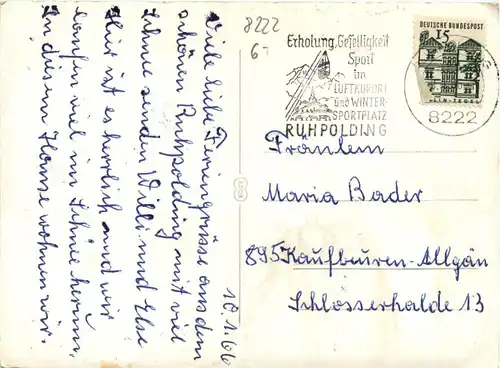 Viele liebe Feriengrüsse aus dem
schönen Ruhpolding mit viel
Schnee senden Willi und Else
Hier ist es herrlich und wir
laufen viel im Schnee herum.
In diesem Hause wohnen wir.
10.1.66
8222
6
Erholung, Geselligkeit
Sport
im
LUFTKURORT
und WINTER-
SPORTPLATZ
RUHPOLDING
DEUTSCHE BUNDESPOST
15
8222
Fräulein
Maria Bader
895 Kaufbeuren-Allgäu
Schlösserhalde 13